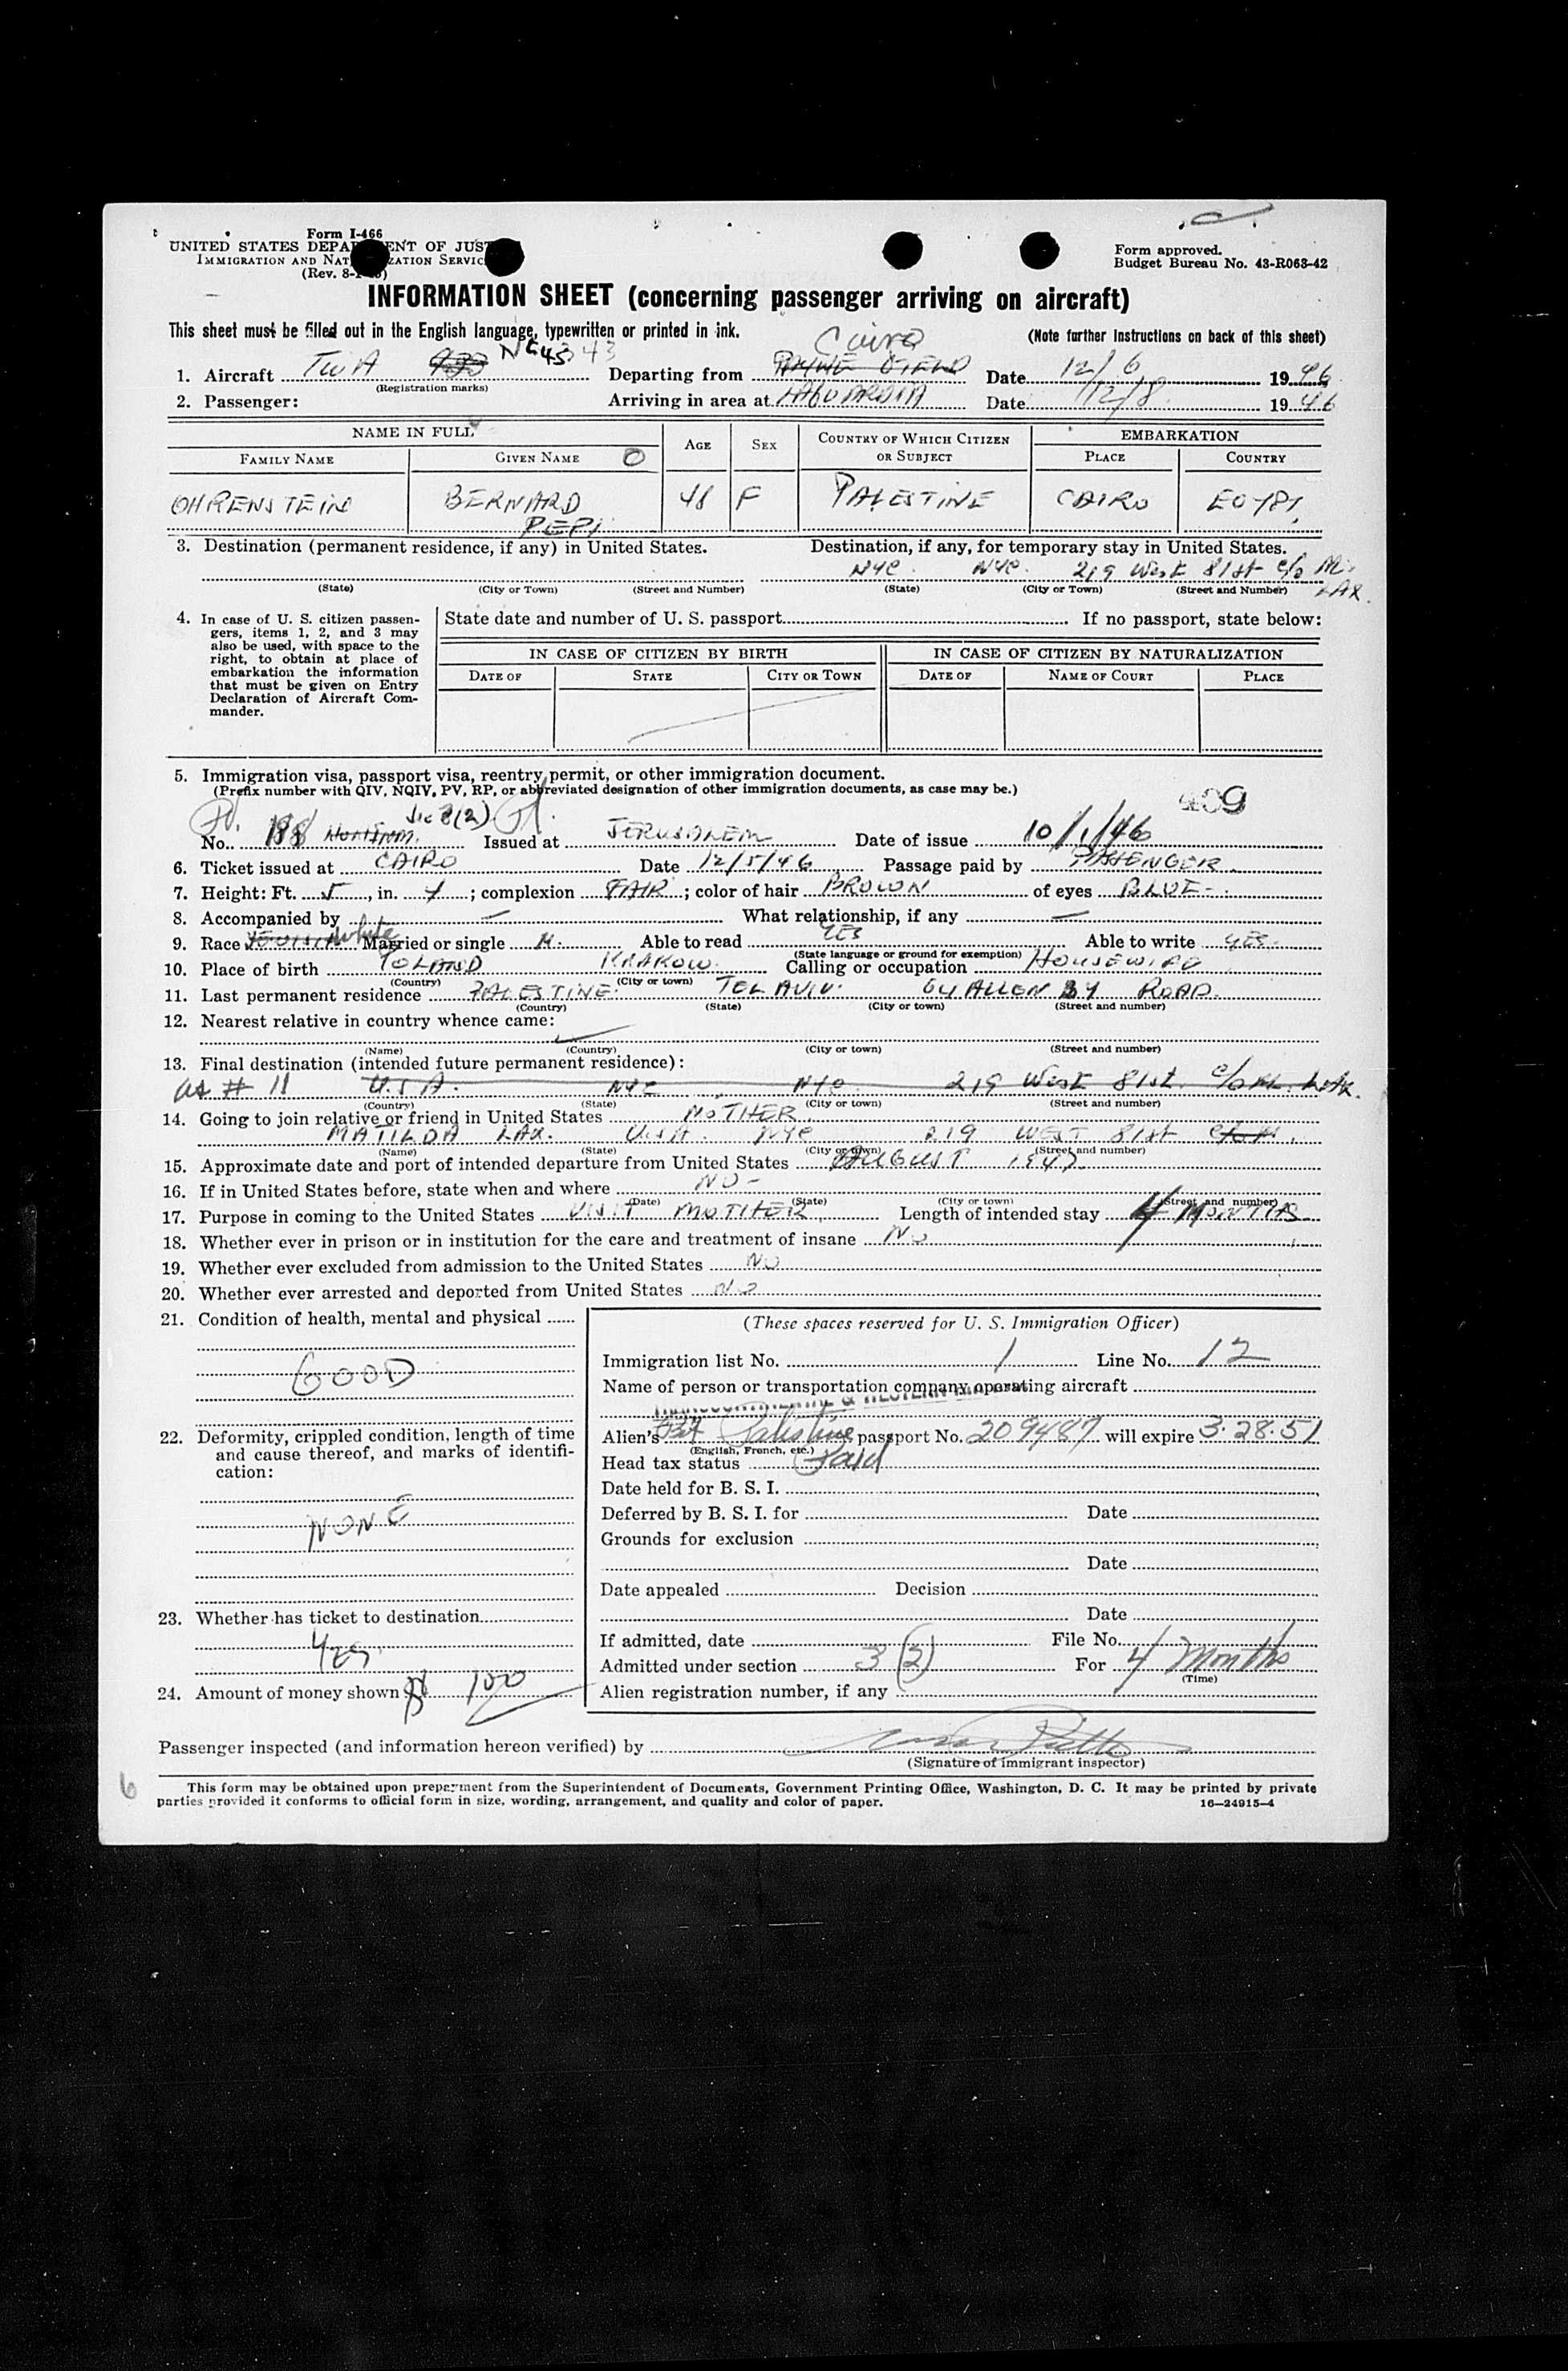 Form I-466
UNITED STATES DEPARTMENT OF JUSTICE
IMMIGRATION AND NATURALIZATION SERVICE
(Rev. 8-1-45)
Form approved.
Budget Bureau No. 43-R063-42
INFORMATION SHEET (concerning passenger arriving on aircraft)
This sheet must be filled out in the English language, typewritten or printed in ink.
(Note further instructions on back of this sheet)
Cairo
1. Aircraft TWA Departing from Date 12/6 1946
(Registration marks)
2. Passenger: Arriving in area at LAGUARDIA Date 12/8 1946
NAME IN FULL AGE SEX COUNTRY OF WHICH CITIZEN OR SUBJECT EMBARKATION
FAMILY NAME GIVEN NAME PLACE COUNTRY
OHRENSTEIN BERNARD 48 F PALESTINE CAIRO EGYPT
PEPI
3. Destination (permanent residence, if any) in United States. Destination, if any, for temporary stay in United States.
NYC. NYC. 219 West 81st c/o M. LAX.
(State) (City or Town) (Street and Number) (State) (City or Town) (Street and Number)
4. In case of U. S. citizen passengers, items 1, 2, and 3 may also be used, with space to the right, to obtain at place of embarkation the information that must be given on Entry Declaration of Aircraft Commander.
State date and number of U. S. passport If no passport, state below:
IN CASE OF CITIZEN BY BIRTH IN CASE OF CITIZEN BY NATURALIZATION
DATE OF STATE CITY OR TOWN DATE OF NAME OF COURT PLACE
5. Immigration visa, passport visa, reentry permit, or other immigration document.
(Prefix number with QIV, NQIV, PV, RP, or abbreviated designation of other immigration documents, as case may be.)
409
No. 188 3(2) Issued at JERUSALEM Date of issue 10/1/46
6. Ticket issued at CAIRO Date 12/5/46 Passage paid by PASSENGER
7. Height: Ft. 5, in. 7; complexion FAIR; color of hair BROWN of eyes BLUE
8. Accompanied by — What relationship, if any —
9. Race White Married or single M. Able to read YES Able to write YES
(State language or ground for exemption)
10. Place of birth POLAND KRAKOW Calling or occupation HOUSEWIFE
(Country) (City or town)
11. Last permanent residence PALESTINE TEL AVIV. 64 ALLEN BY ROAD
(Country) (State) (City or town) (Street and number)
12. Nearest relative in country whence came:
(Name) (Country) (City or town) (Street and number)
13. Final destination (intended future permanent residence):
as # 11 U.S.A. NYC NYC 219 West 81st. c/o M. LAX.
(Country) (State) (City or town) (Street and number)
14. Going to join relative or friend in United States MOTHER
MATILDA LAX. U.S.A. NYC 219 WEST 81st
(Name) (State) (City or town) (Street and number)
15. Approximate date and port of intended departure from United States AUGUST 1947
16. If in United States before, state when and where NO -
(Date) (State) (City or town) (Street and number)
17. Purpose in coming to the United States VISIT MOTHER Length of intended stay 4 MONTHS
18. Whether ever in prison or in institution for the care and treatment of insane NO
19. Whether ever excluded from admission to the United States NO
20. Whether ever arrested and deported from United States NO
21. Condition of health, mental and physical
GOOD
22. Deformity, crippled condition, length of time and cause thereof, and marks of identification:
NONE
23. Whether has ticket to destination
Yes
24. Amount of money shown $ 100
(These spaces reserved for U. S. Immigration Officer)
Immigration list No. 1 Line No. 12
Name of person or transportation company operating aircraft
Alien's Palestine passport No. 209487 will expire 3.28.51
(English, French, etc.)
Head tax status Paid
Date held for B. S. I.
Deferred by B. S. I. for Date
Grounds for exclusion
Date
Date appealed Decision
Date
If admitted, date File No.
Admitted under section 3 (2) For 4 Months
(Time)
Alien registration number, if any
Passenger inspected (and information hereon verified) by
(Signature of immigrant inspector)
6
This form may be obtained upon prepayment from the Superintendent of Documents, Government Printing Office, Washington, D. C. It may be printed by private
parties provided it conforms to official form in size, wording, arrangement, and quality and color of paper. 16—24915-4